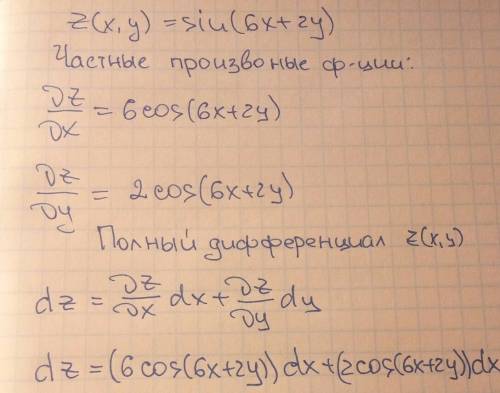 z(x,y) = sin(6x+2y)
Частные произвоные ф-ции:
∂z/∂x = 6cos(6x+2y)
∂z/∂y = 2cos(6x+2y)
Полный дифференциал z(x,y)
dz = ∂z/∂x dx + ∂z/∂y dy
dz = (6cos(6x+2y))dx+(2cos(6x+2y))dx